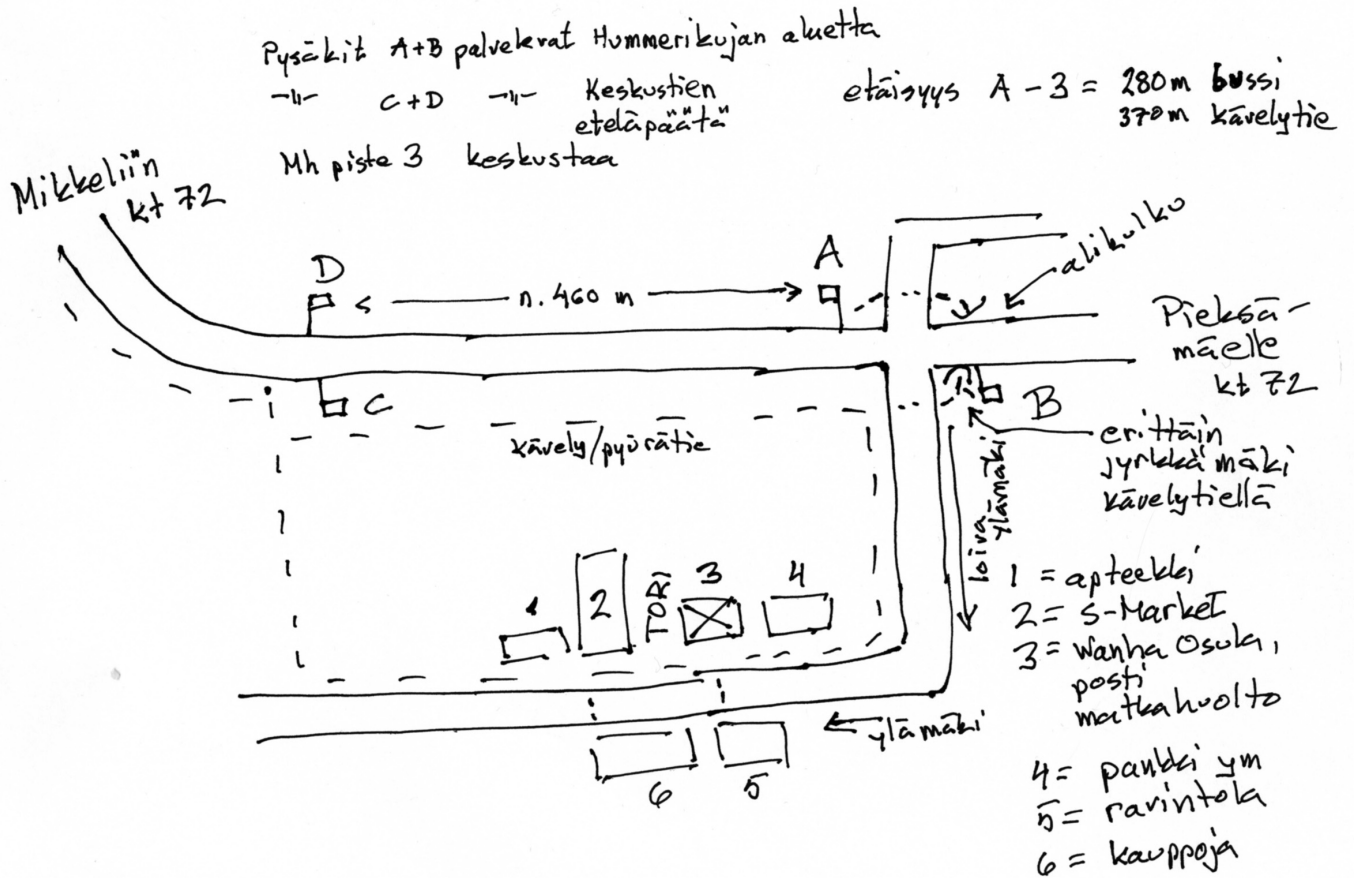 Pysäkit A+B palvelevat Hummerikujan aluetta
-"- C+D -"- Keskustien
eteläpäätä
Mh piste 3 keskustaa
etäisyys A - 3 = 280m bussi
370m kävelytie
Mikkeliin
kt 72
D
n. 460 m
A
alikulku
Pieksä-
mäelle
kt 72
C
B
kävely/pyörätie
erittäin
jyrkkä mäki
kävelytiellä
loiva
ylämäki
1
2
TORI
3
4
ylämäki
6
5
1 = apteekki
2 = S-Market
3 = Wanha Osula,
posti
matkahuolto
4 = pankki ym
5 = ravintola
6 = kauppoja